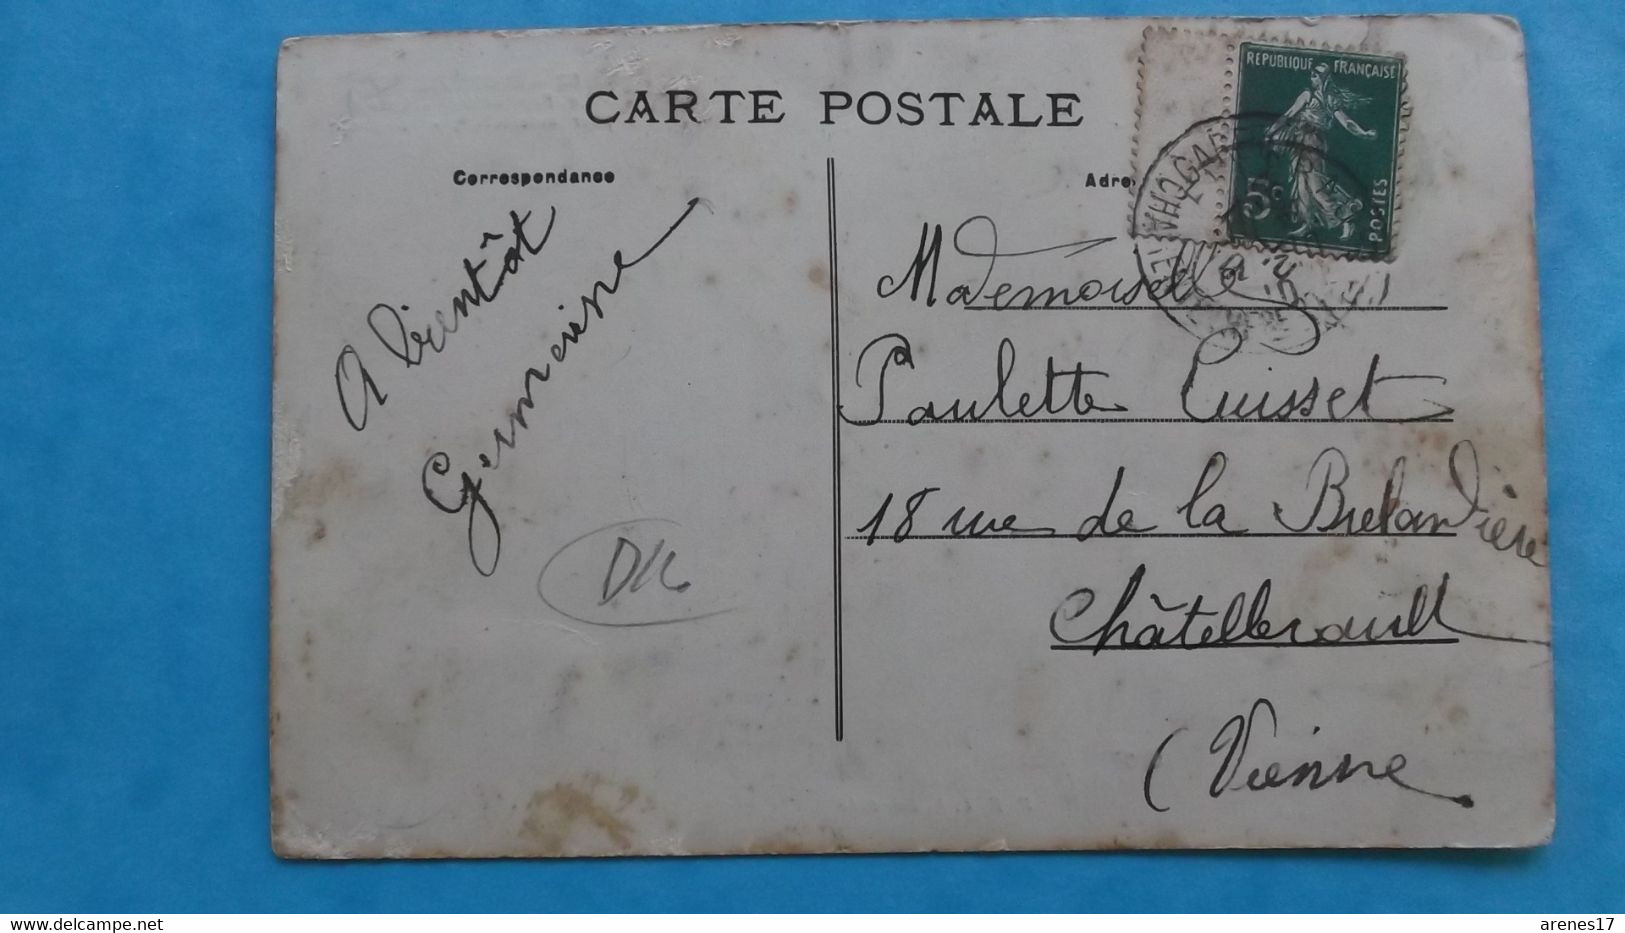 CARTE POSTALE
Correspondance
A bientôt
Germaine
Adre
REPUBLIQUE FRANÇAISE
5c
POSTES
Mademoiselle
Paulette Cuisset
18 rue de la Brelandière
Châtellerault
(Vienne
delcampe.net
arenes17